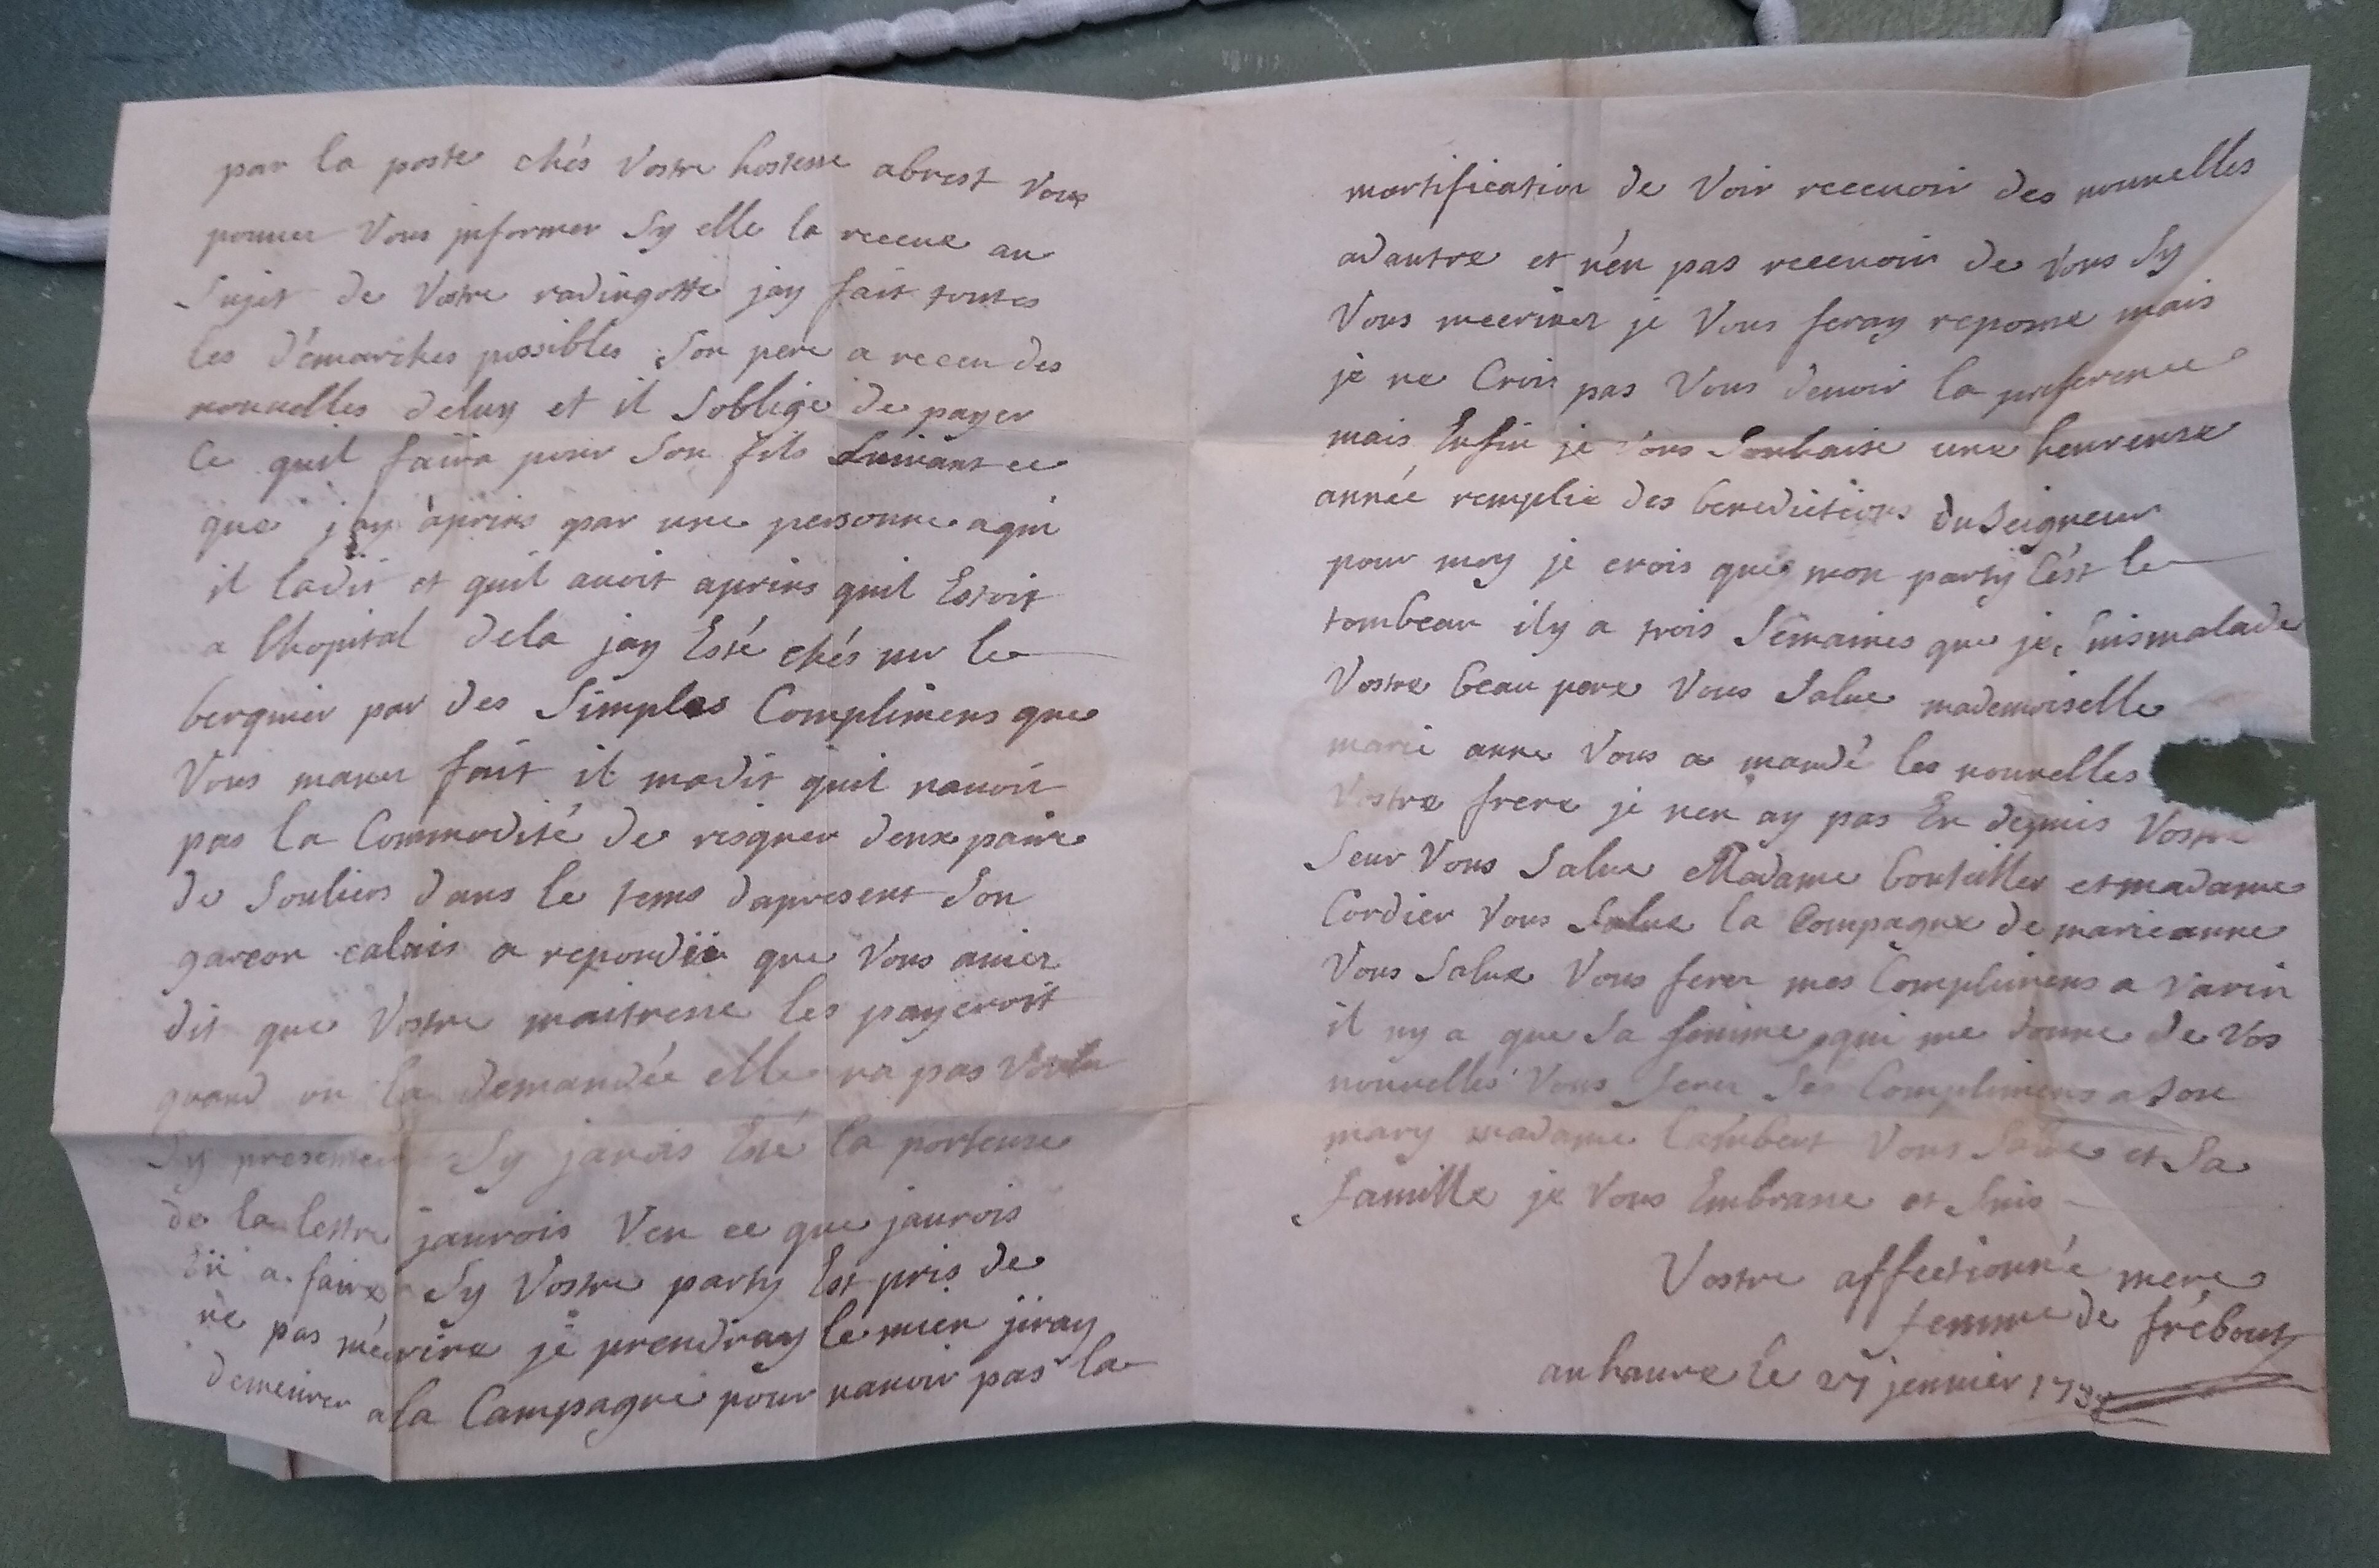 par la poste chés Vostre hostesse abrest vous
pouuez Vous jnformer Sy elle la receue au
Sujet de Vostre radingotte jay fait toutes
les démarches possibles Son pere a receu des
nouuelles deluy et il Soblige de payer
Ce quil faira pour Son fils Suiuant ce
que jay aprins par une personne aqui
il ladit et quil auoit aprins quil Estoit
a lhopital dela jay Esté chés mr le
berquier par des Simples Complimens que
Vous mauez fait il madit quil nauoit
pas la Commodité de risquer deux paire
de Souliers dans le tems dapresent Son
garcon calais a repondü que Vous auiez
dit que Vostre maitresse les payeroit
quand on la demandée elle na pas Voulu
Sy presenter Sy jauois Esté la porteuse
de la lettre jaurois Veu ce que jaurois
Eü a faire Sy Vostre party Est pris de
ne pas mécrire je prendray le mien jiray
demeurer ala Campagne pour nauoir pas la
mortification de Voir receuoir des nouuelles
adautre et nén pas receuoir de Vous Sy
Vous mecriuez je Vous feray reponse mais
je ne Crois pas Vous deuoir la preference
mais Enfin je Vous Souhaise une heureuse
année remplie des benedictions du Seigneur
pour moy je crois que mon party Cést le
tombeau ily a trois Sémaines que je Suis malade
Vostre beau pere Vous Salue mademoiselle
marie anne Vous a mandé les nouuelles
Vostre frere je nen ay pas Eu depuis Vostre
Seur Vous Salue Madame bouteiller et madame
Cordier Vous Salue la Compagne de marieanne
Vous Salue Vous ferez mes Complimens a Varin
il ny a que Sa femme qui me donne de Vos
nouuelles Vous ferez Ses Complimens a Son
mary madame lambert Vous Salue et Sa
famille je Vous Embrasse et Suis
Vostre affectionnée mere
femme de frébourg
au haure le 27 jenuier